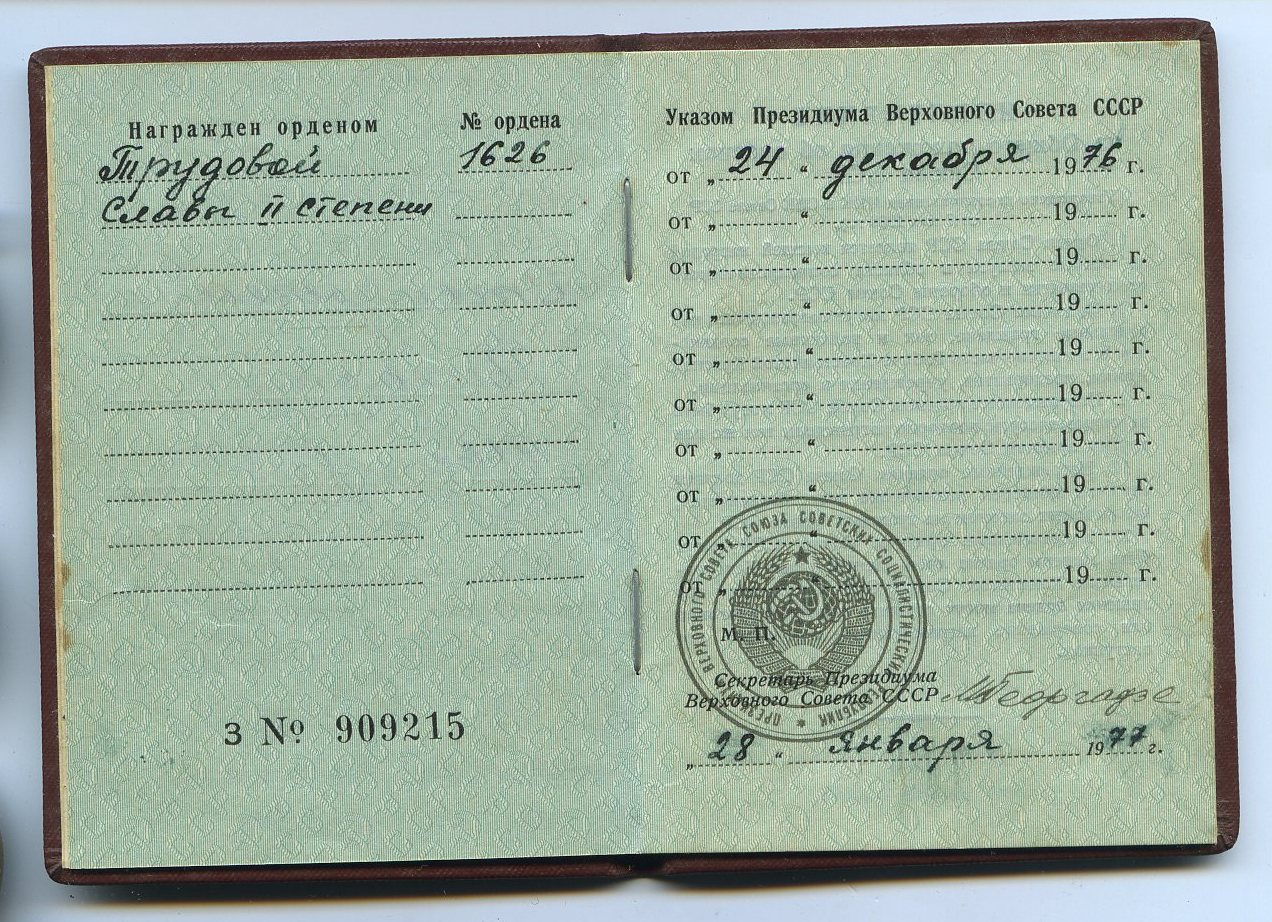 Награжден орденом
№ ордена
Трудовой
1626
Славы II степени
З № 909215
Указом Президиума Верховного Совета СССР
от „ 24 “ декабря 1976 г.
от „ “ 19 г.
от „ “ 19 г.
от „ “ 19 г.
от „ “ 19 г.
от „ “ 19 г.
от „ “ 19 г.
от „ “ 19 г.
от „ “ 19 г.
от „ “ 19 г.
ПРЕЗИДИУМ ВЕРХОВНОГО СОВЕТА СОЮЗА СОВЕТСКИХ СОЦИАЛИСТИЧЕСКИХ РЕСПУБЛИК
М. П.
Секретарь Президиума
Верховного Совета СССР МГеоргадзе
„ 28 “ января 1977 г.